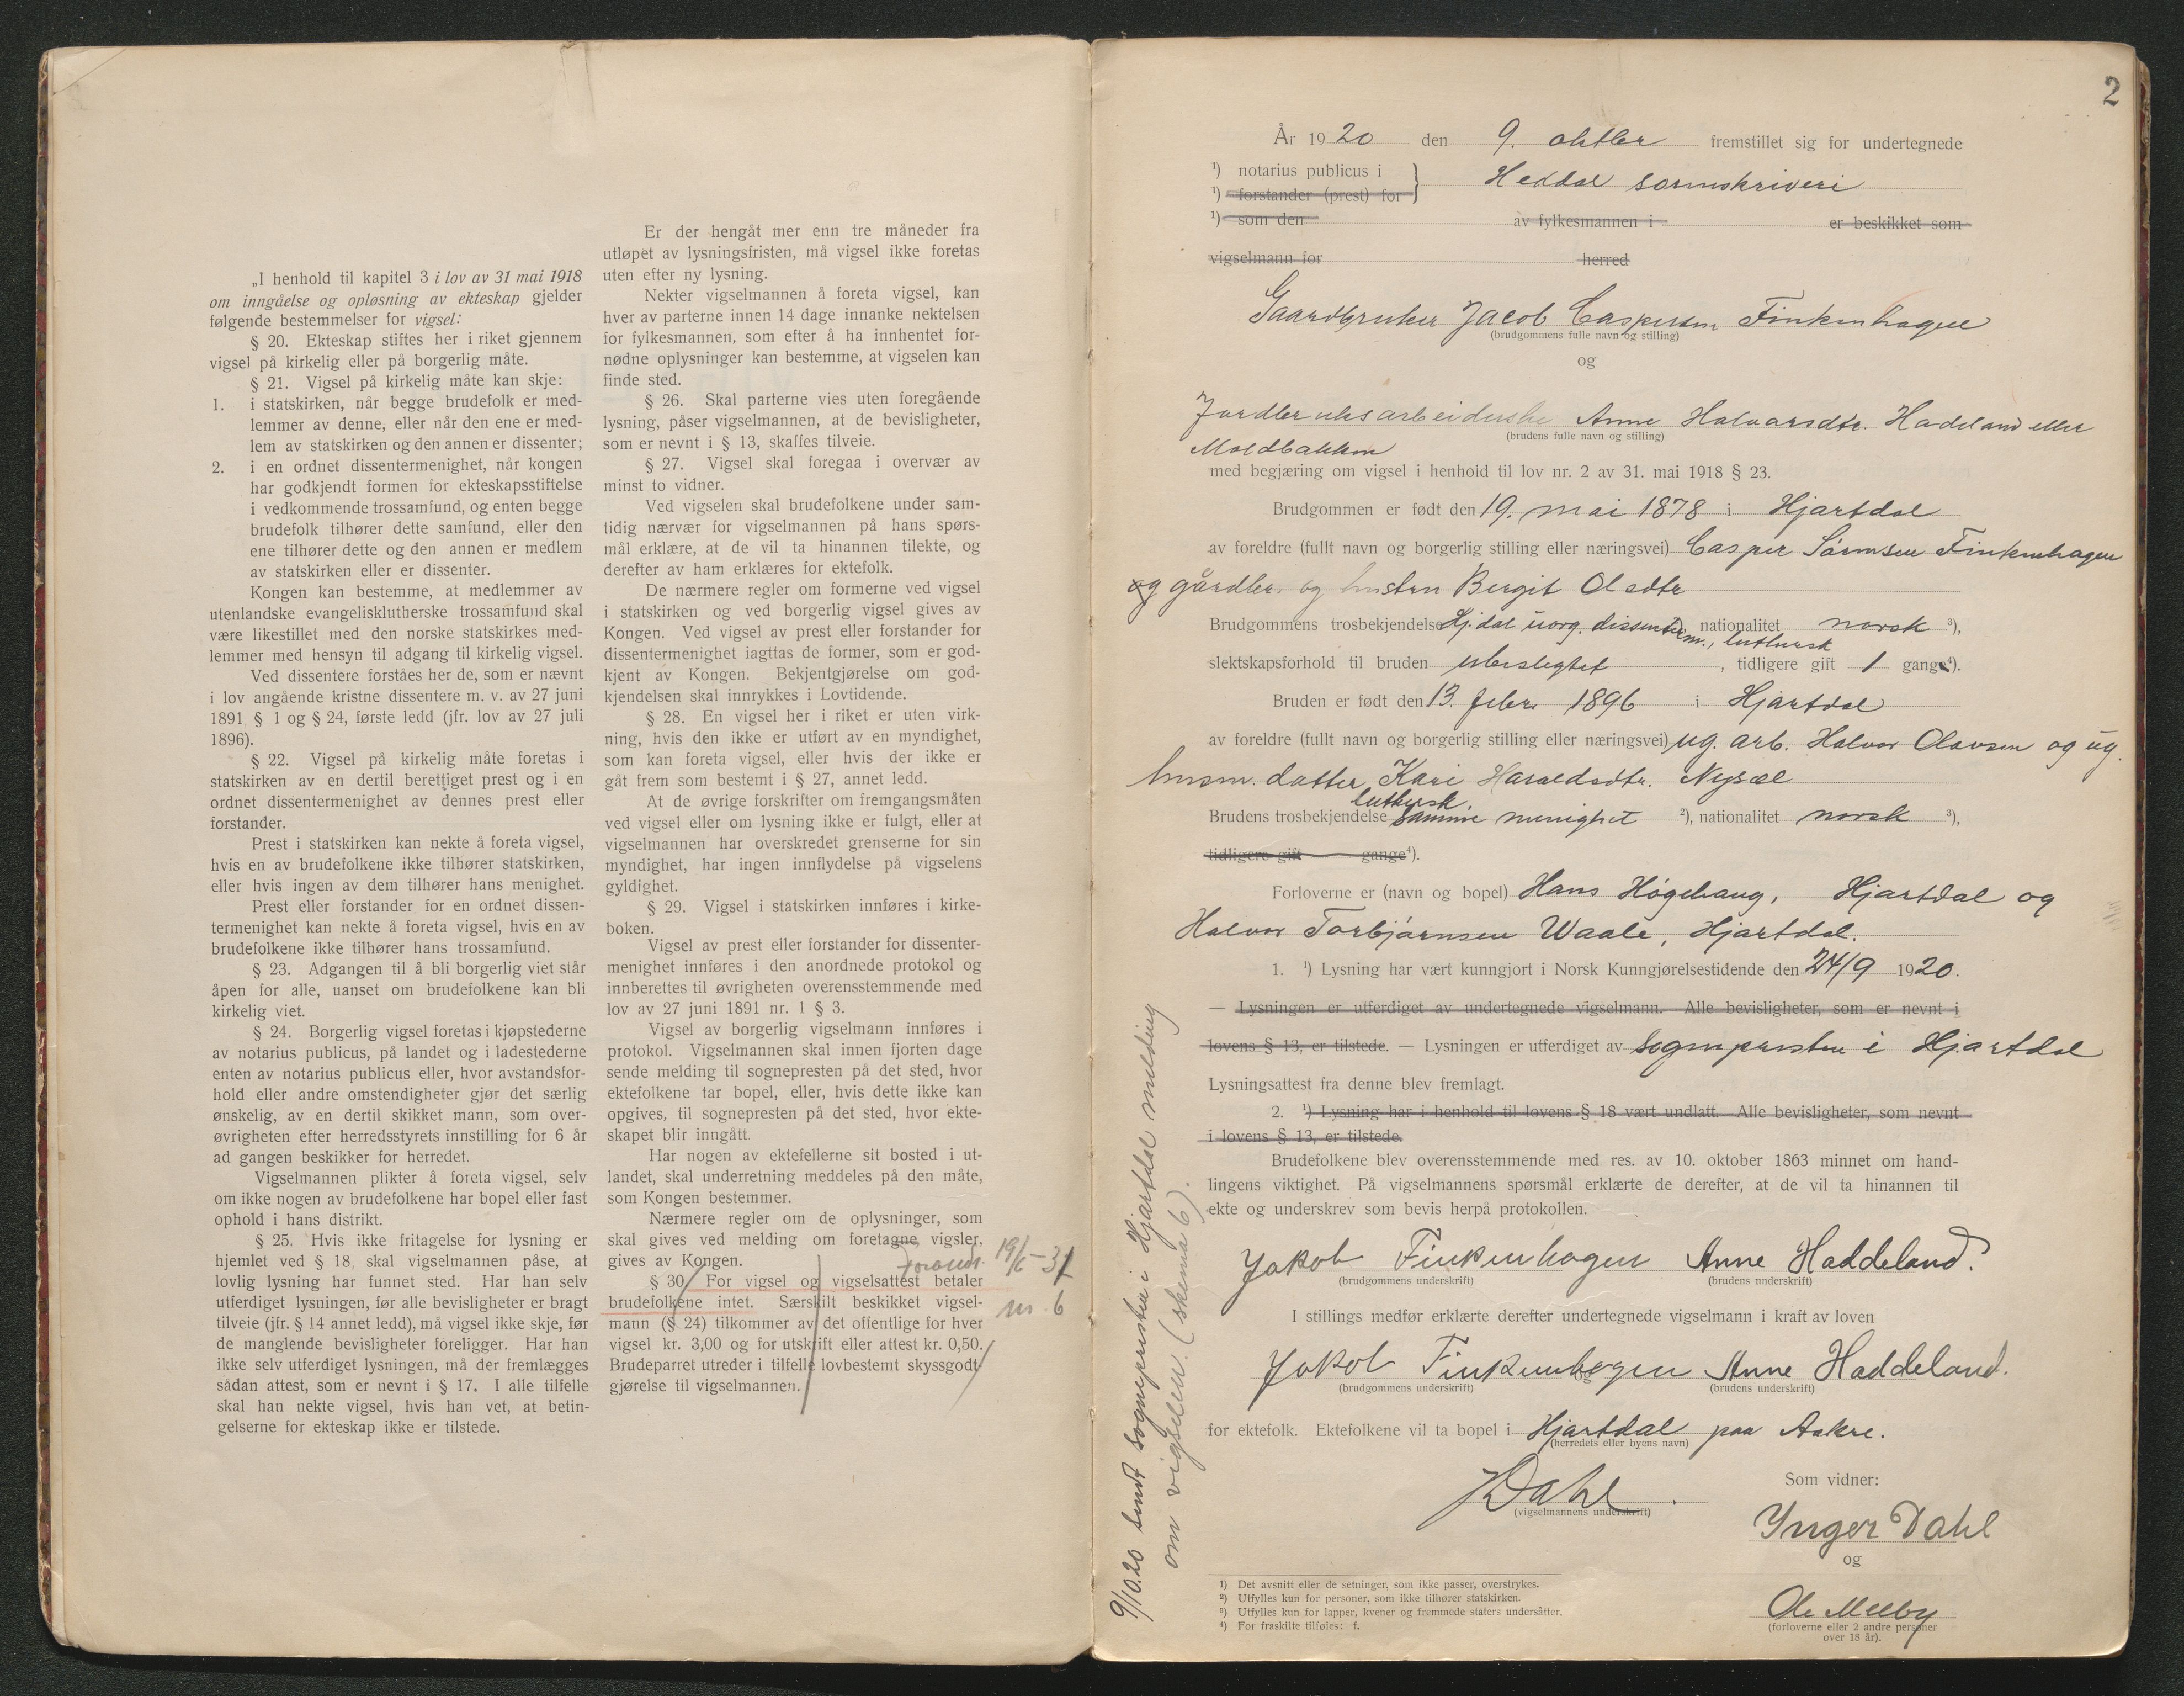 „I henhold til kapitel 3 i lov av 31 mai 1918
om inngåelse og opløsning av ekteskap gjelder
følgende bestemmelser for vigsel:
§ 20. Ekteskap stiftes her i riket gjennem
vigsel på kirkelig eller på borgerlig måte.
§ 21. Vigsel på kirkelig måte kan skje:
1. i statskirken, når begge brudefolk er med-
lemmer av denne, eller når den ene er med-
lem av statskirken og den annen er dissenter;
2. i en ordnet dissentermenighet, når kongen
har godkjendt formen for ekteskapsstiftelse
i vedkommende trossamfund, og enten begge
brudefolk tilhører dette samfund, eller den
ene tilhører dette og den annen er medlem
av statskirken eller er dissenter.
Kongen kan bestemme, at medlemmer av
utenlandske evangelisklutherske trossamfund skal
være likestillet med den norske statskirkes med-
lemmer med hensyn til adgang til kirkelig vigsel.
Ved dissentere forståes her de, som er nævnt
i lov angående kristne dissentere m. v. av 27 juni
1891 § 1 og § 24, første ledd (jfr. lov av 27 juli
1896).
§ 22. Vigsel på kirkelig måte foretas i
statskirken av en dertil berettiget prest og i en
ordnet dissentermenighet av dennes prest eller
forstander.
Prest i statskirken kan nekte å foreta vigsel,
hvis en av brudefolkene ikke tilhører statskirken,
eller hvis ingen av dem tilhører hans menighet.
Prest eller forstander for en ordnet dissen-
termenighet kan nekte å foreta vigsel, hvis en av
brudefolkene ikke tilhører hans trossamfund.
§ 23. Adgangen til å bli borgerlig viet står
åpen for alle, uanset om brudefolkene kan bli
kirkelig viet.
§ 24. Borgerlig vigsel foretas i kjøpstederne
av notarius publicus, på landet og i ladestederne
enten av notarius publicus eller, hvor avstandsfor-
hold eller andre omstendigheter gjør det særlig
ønskelig, av en dertil skikket mann, som over-
øvrigheten efter herredsstyrets innstilling for 6 år
ad gangen beskikker for herredet.
Vigselmannen plikter å foreta vigsel, selv
om ikke nogen av brudefolkene har bopel eller fast
ophold i hans distrikt.
§ 25. Hvis ikke fritagelse for lysning er
hjemlet ved § 18 skal vigselmannen påse, at
lovlig lysning har funnet sted. Har han selv
utferdiget lysningen, før alle bevisligheter er bragt
tilveie (jfr. § 14 annet ledd), må vigsel ikke skje, før
de manglende bevisligheter foreligger. Har han
ikke selv utferdiget lysningen, må der fremlægges
sådan attest, som er nevnt i § 17. I alle tilfelle
skal han nekte vigsel, hvis han vet, at betin-
gelserne for ekteskap ikke er tilstede.
Er der hengåt mer enn tre måneder fra
utløpet av lysningsfristen, må vigsel ikke foretas
uten efter ny lysning.
Nekter vigselmannen å foreta vigsel, kan
hver av parterne innen 14 dage innanke nektelsen
for fylkesmannen, som efter å ha innhentet for-
nødne oplysninger kan bestemme, at vigselen kan
finde sted.
§ 26. Skal parterne vies uten foregående
lysning, påser vigselmannen, at de bevisligheter,
som er nevnt i § 13, skaffes tilveie.
§ 27. Vigsel skal foregaa i overvær av
minst to vidner.
Ved vigselen skal brudefolkene under sam-
tidig nærvær for vigselmannen på hans spørs-
mål erklære, at de vil ta hinannen tilekte, og
derefter av ham erklæres for ektefolk.
De nærmere regler om formerne ved vigsel
i statskirken og ved borgerlig vigsel gives av
Kongen. Ved vigsel av prest eller forstander for
dissentermenighet iagttas de former, som er god-
kjent av Kongen. Bekjentgjørelse om god-
kjendelsen skal innrykkes i Lovtidende.
§ 28. En vigsel her i riket er uten virk-
ning, hvis den ikke er utført av en myndighet,
som kan foreta vigsel, eller hvis der ikke er
gåt frem som bestemt i § 27, annet ledd.
At de øvrige forskrifter om fremgangsmåten
ved vigsel eller om lysning ikke er fulgt, eller at
vigselmannen har overskredet grenserne for sin
myndighet, har ingen innflydelse på vigselens
gyldighet.
§ 29. Vigsel i statskirken innføres i kirke-
boken.
Vigsel av prest eller forstander for dissenter-
menighet innføres i den anordnede protokol og
innberettes til øvrigheten overensstemmende med
lov av 27 juni 1891 nr. 1 § 3.
Vigsel av borgerlig vigselmann innføres i
protokol. Vigselmannen skal innen fjorten dage
sende melding til sognepresten på det sted, hvor
ektefolkene tar bopel, eller, hvis dette ikke kan
opgives, til sognepresten på det sted, hvor ekte-
skapet blir inngått.
Har nogen av ektefellerne sit bosted i ut-
landet, skal underretning meddeles på den måte,
som Kongen bestemmer.
Nærmere regler om de oplysninger, som
skal gives ved melding om foretagne vigsler,
gives av Kongen.
Forandr. 19/6-31
nr. 6
§ 30. For vigsel og vigselsattest betaler
brudefolkene intet. Særskilt beskikket vigsel-
mann (§ 24) tilkommer av det offentlige for hver
vigsel kr. 3,00 og for utskrift eller attest kr. 0,50.
Brudeparret utreder i tilfelle lovbestemt skyssgodt-
gjørelse til vigselmannen.
2
År 1920 den 9. oktber fremstillet sig for undertegnede
1) notarius publicus i } Heddal sorenskriveri
1) forstander (prest) for
1) som den av fylkesmannen i er beskikket som
vigselmann for herred
Gaardbruker Jacob Caspersen Finkenhagen
(brudgommens fulle navn og stilling)
og
Jordbruksarbeiderske Anne Halvorsdtr. Hadeland eller
(brudens fulle navn og stilling)
Moldbakken
med begjæring om vigsel i henhold til lov nr. 2 av 31. mai 1918 § 23.
Brudgommen er født den 19. mai 1878 i Hjartdal
av foreldre (fullt navn og borgerlig stilling eller næringsvei) Casper Sørensen Finkenhagen
og gårdbr. og hustru Bergit Olsdtr
Brudgommens trosbekjendelse Hj.dal uorg. dissenterm., luthersk nationalitet norsk 3),
slektskapsforhold til bruden ubeslegtet, tidligere gift 1 gange4).
Bruden er født den 13. febr. 1896 i Hjartdal
av foreldre (fullt navn og borgerlig stilling eller næringsvei) ug. arb. Halvor Olavsen og ug.
husm. datter Kari Haraldsdtr. Nysæl
luthersk.
Brudens trosbekjendelse samme menighet 2), nationalitet norsk 3),
tidligere gift gange4).
Forloverne er (navn og bopel) Hans Høgehaug, Hjartdal og
Halvor Torbjørnsen Waale, Hjartdal.
1. 1) Lysning har vært kunngjort i Norsk Kunngjørelsestidende den 24/9 1920.
— Lysningen er utferdiget av undertegnede vigselmann. Alle bevisligheter, som er nevnt i
lovens § 13, er tilstede. — Lysningen er utferdiget av sognepresten i Hjartdal
Lysningsattest fra denne blev fremlagt.
2. 1) Lysning har i henhold til lovens § 18 vært undlatt. Alle bevisligheter, som nevnt
i lovens § 13, er tilstede.
Brudefolkene blev overensstemmende med res. av 10. oktober 1863 minnet om hand-
lingens viktighet. På vigselmannens spørsmål erklærte de derefter, at de vil ta hinannen til
ekte og underskrev som bevis herpå protokollen.
Jakob Finkenhagen Anne Haddeland.
(brudgommens underskrift) (brudens underskrift)
I stillings medfør erklærte derefter undertegnede vigselmann i kraft av loven
Jakob Finkenhagen Anne Haddeland.
(brudgommens underskrift) (brudens underskrift)
for ektefolk. Ektefolkene vil ta bopel i Hjartdal paa Aakre.
(herredets eller byens navn)
Dahl.
(vigselmannens underskrift)
Som vidner:
Ynger Dahl
og
Ole Melby
(forloverne eller 2 andre personer
over 18 år).
1) Det avsnitt eller de setninger, som ikke passer, overstrykes.
2) Utfylles kun for personer, som ikke tilhører statskirken.
3) Utfylles kun for lapper, kvener og fremmede staters undersåtter.
4) For fraskilte tilføies: f.
9/10.20 sendt sognepresten i Hjartdal melding
om vigselen. (skema 6).